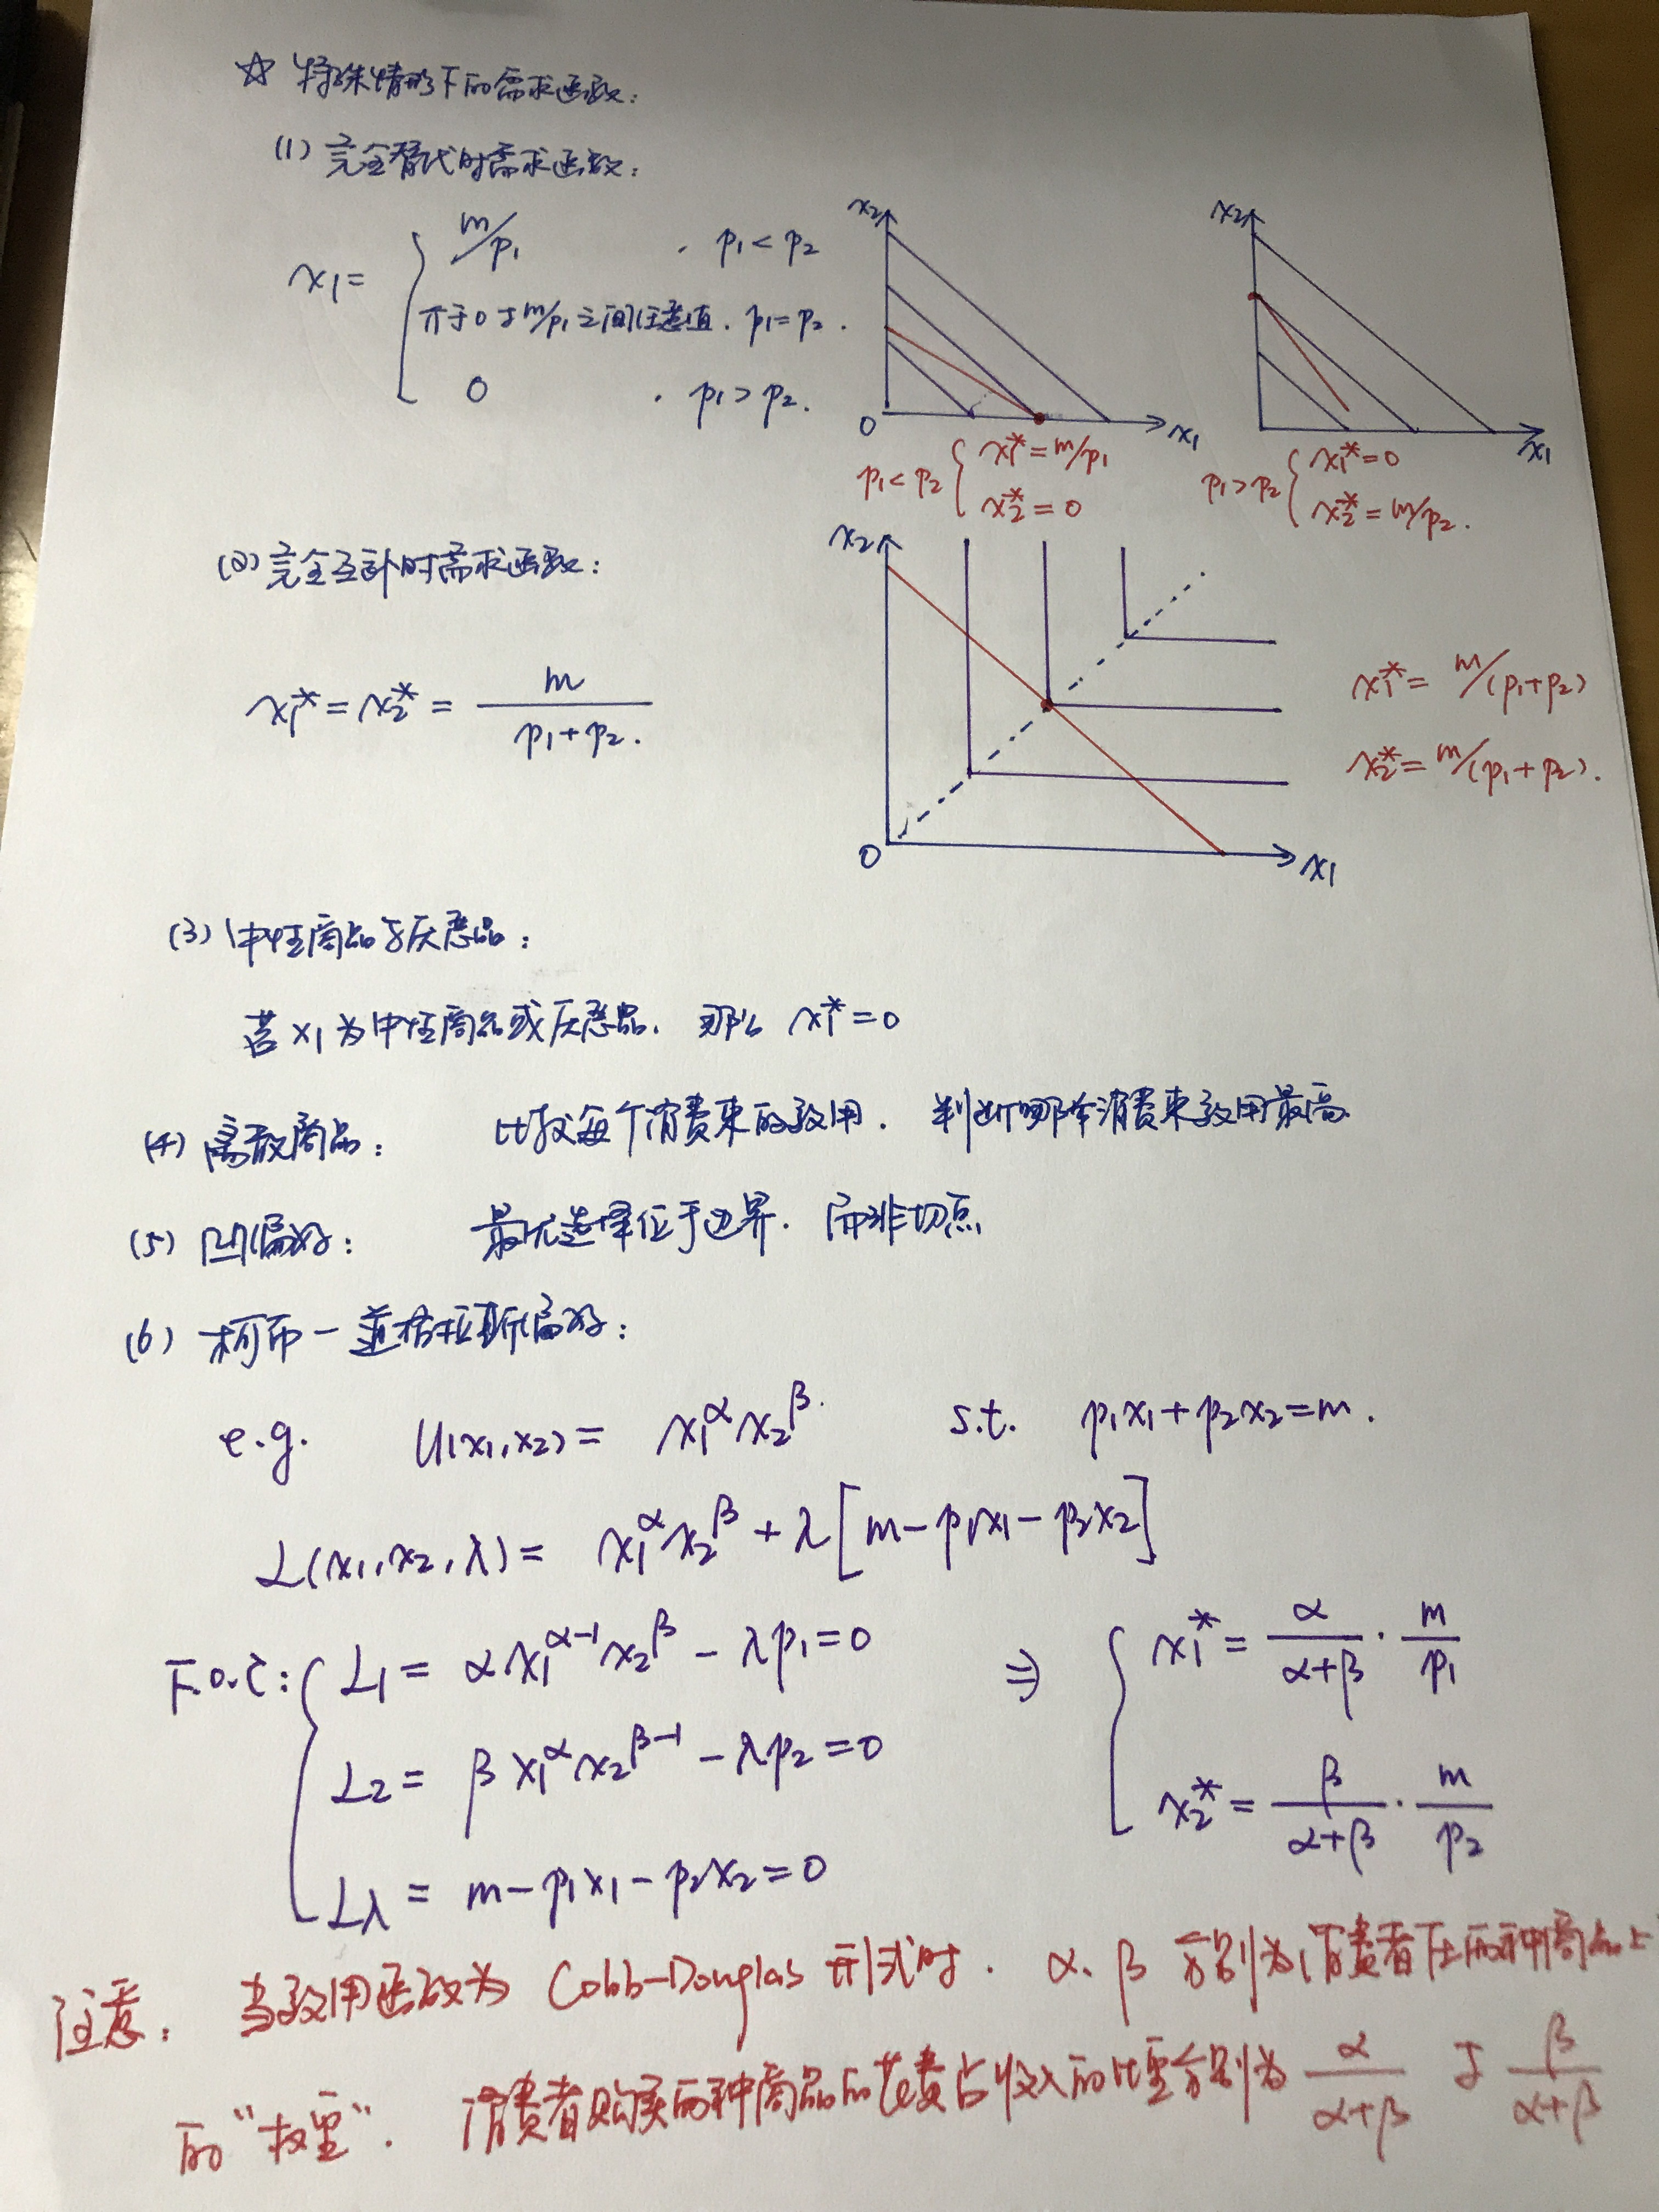 ☆ 特殊情形下的需求函数:
(1) 完全替代时需求函数:
x₁= { m/p₁ , p₁ < p₂
介于0与m/p₁之间任意值, p₁=p₂.
0 , p₁ > p₂.
x₂
0
x₁
p₁<p₂ { x₁*=m/p₁
x₂*=0
x₂
x₁
p₁>p₂ { x₁*=0
x₂*=m/p₂.
(2) 完全互补时需求函数:
x₁*=x₂*= m/(p₁+p₂).
x₂
0
x₁
x₁*= m/(p₁+p₂)
x₂*= m/(p₁+p₂).
(3) 中性商品与厌恶品:
若x₁为中性商品或厌恶品, 那么 x₁*=0
(4) 离散商品: 比较每个消费束的效用, 判断哪个消费束效用最高
(5) 凹偏好: 最优选择位于边界, 而非切点
(6) 柯布-道格拉斯偏好:
e.g. U(x₁,x₂)= x₁^α x₂^β. s.t. p₁x₁+p₂x₂=m.
L(x₁,x₂,λ)= x₁^α x₂^β + λ[m-p₁x₁-p₂x₂]
F.O.C: { L₁= αx₁^(α-1) x₂^β - λp₁=0
L₂= βx₁^α x₂^(β-1) - λp₂=0
Lλ= m-p₁x₁-p₂x₂=0
⇒ { x₁*= α/(α+β) · m/p₁
x₂*= β/(α+β) · m/p₂
注意: 当效用函数为 Cobb-Douglas 形式时, α、β 分别为消费者在两种商品上
的"权重", 消费者购买两种商品的花费占收入的比重分别为 α/(α+β) 与 β/(α+β)